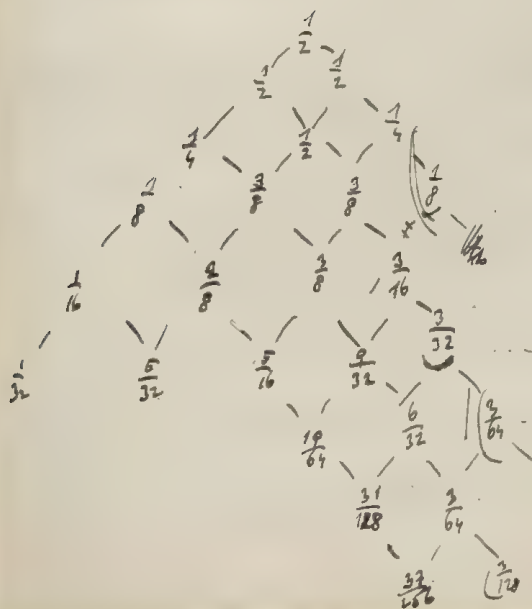 1/2
1/2 1/2
1/4 1/2 1/4
1/8 3/8 3/8 1/8
1/16 2/8 3/8 3/16
1/32 5/32 5/16 9/32 3/32
19/64 6/32 3/64
31/128 3/64
37/256 3/128